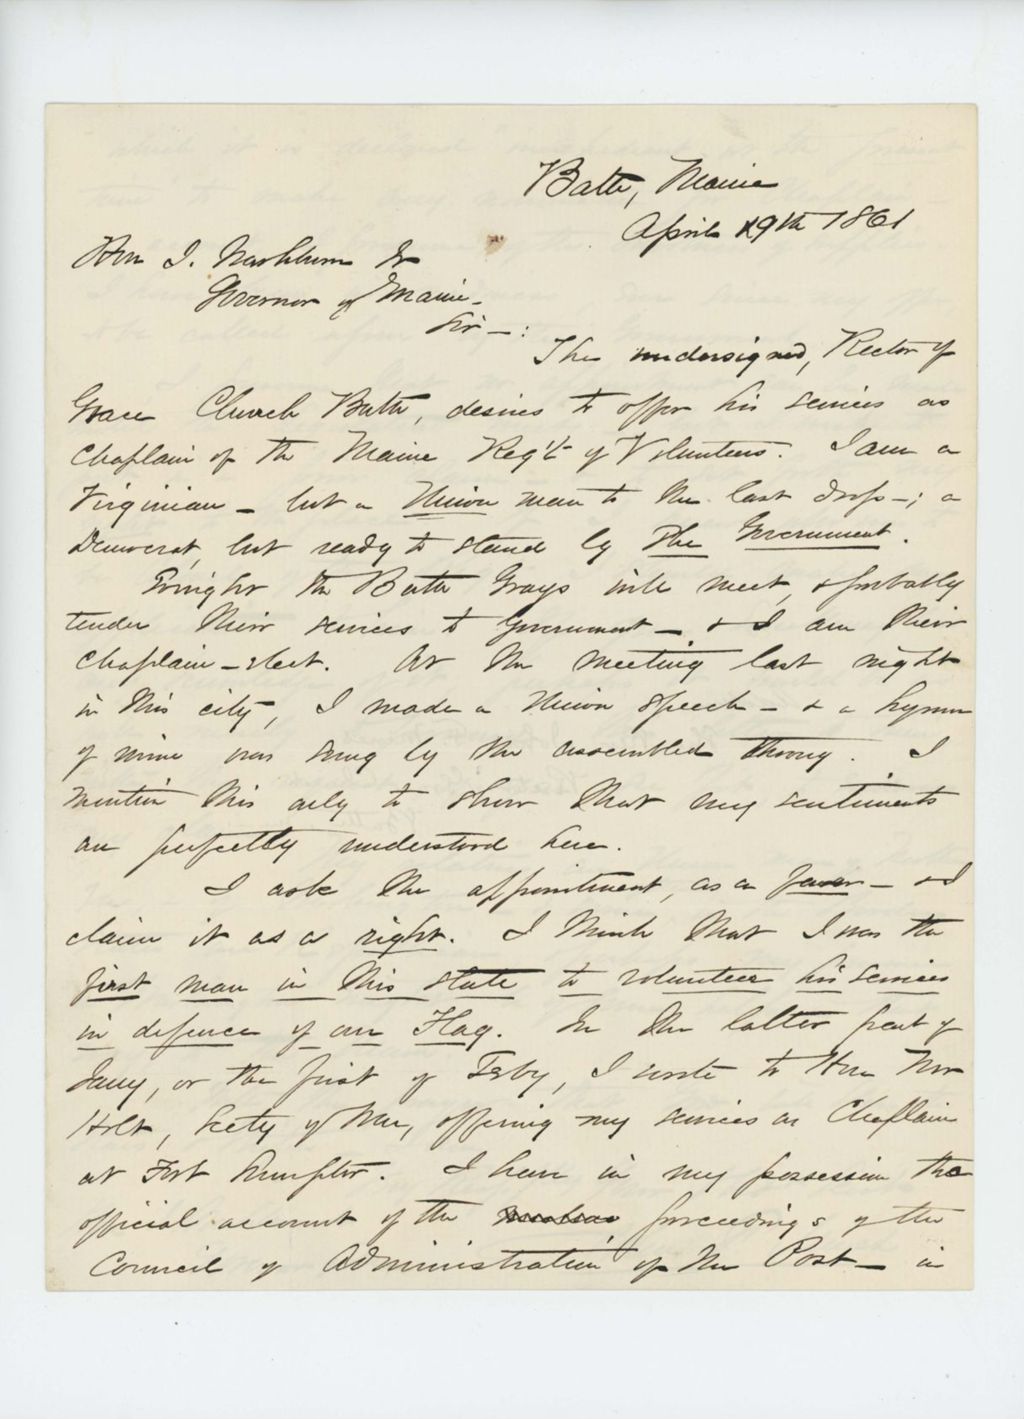 Bath, Maine
April 19th 1861
Hon I. Washburn Jr
Governor of Maine-
Sir-:
The undersigned, Rector of
Grace Church Bath, desires to offer his services as
Chaplain of the Maine Reg't of Volunteers. I am a
Virginian - but a Union man to the last drop -; a
Democrat, but ready to stand by the Government.
Tonight the Bath Grays will meet, & probably
tender their services to Government - & I am their
Chaplain-elect. At the meeting last night
in this city, I made a Union speech - & a hymn
of mine was sung by the assembled throng. I
mention this only to show that my sentiments
are perfectly understood here.
I ask the appointment, as a favor - & I
claim it as a right. I think that I was the
first man in this State to volunteer his services
in defence of our Flag. In the latter part of
Jany, or the first of Feby, I wrote to Hon
Holt, Secty of War, offering my services as Chaplain
at Fort Sumpter. I have in my possession the
official account of the proceedings of the
Council of Administration of the Post - in